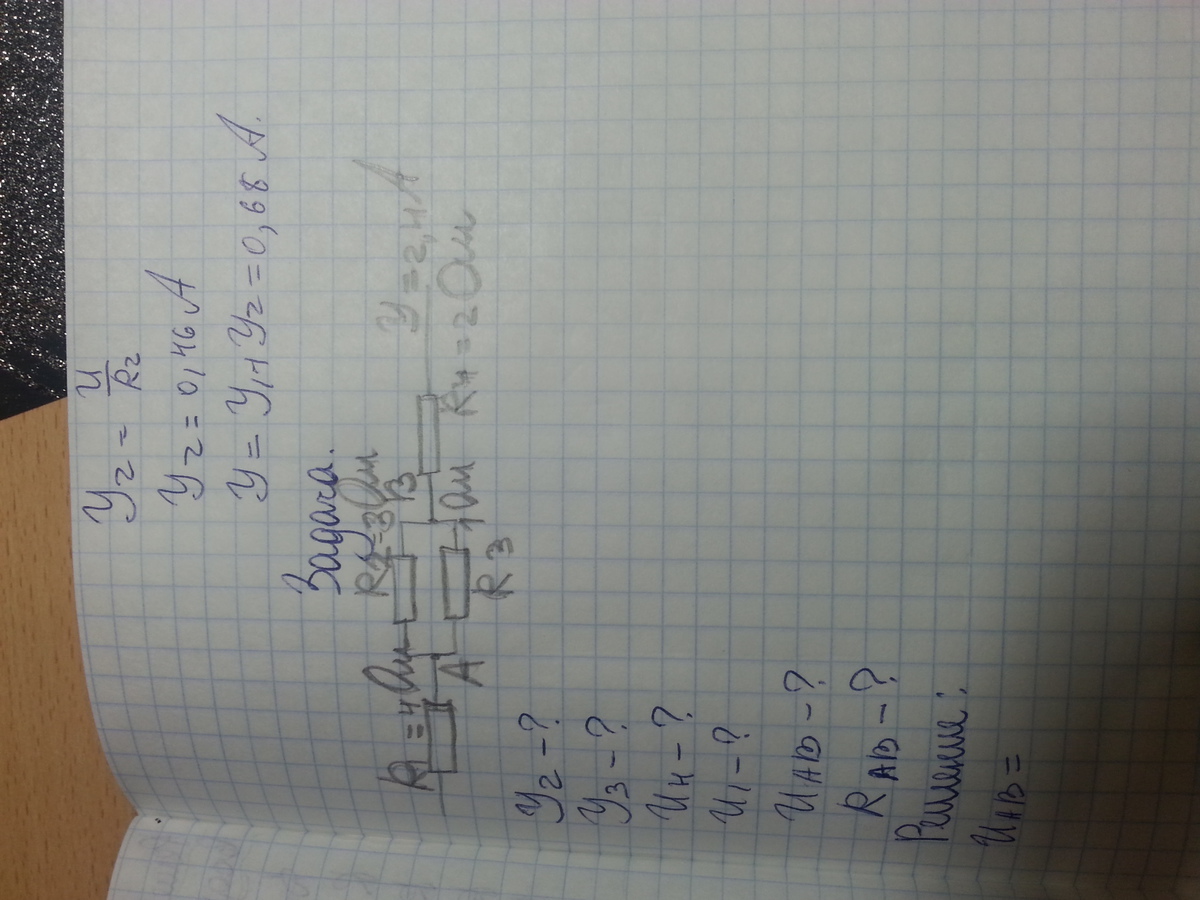 У₂ = U/R₂
У₂ = 0,46 А
У = У₁ + У₂ = 0,68 А.
Задача.
R₁ = 4 Ом
R₂ = 3 Ом
У = 2,4 А
А
В
R₃
1 Ом
R₄ = 2 Ом
У₂ - ?
У₃ - ?
U₄ - ?
U₁ - ?
UАВ - ?
RАВ - ?
Решение:
UАВ =